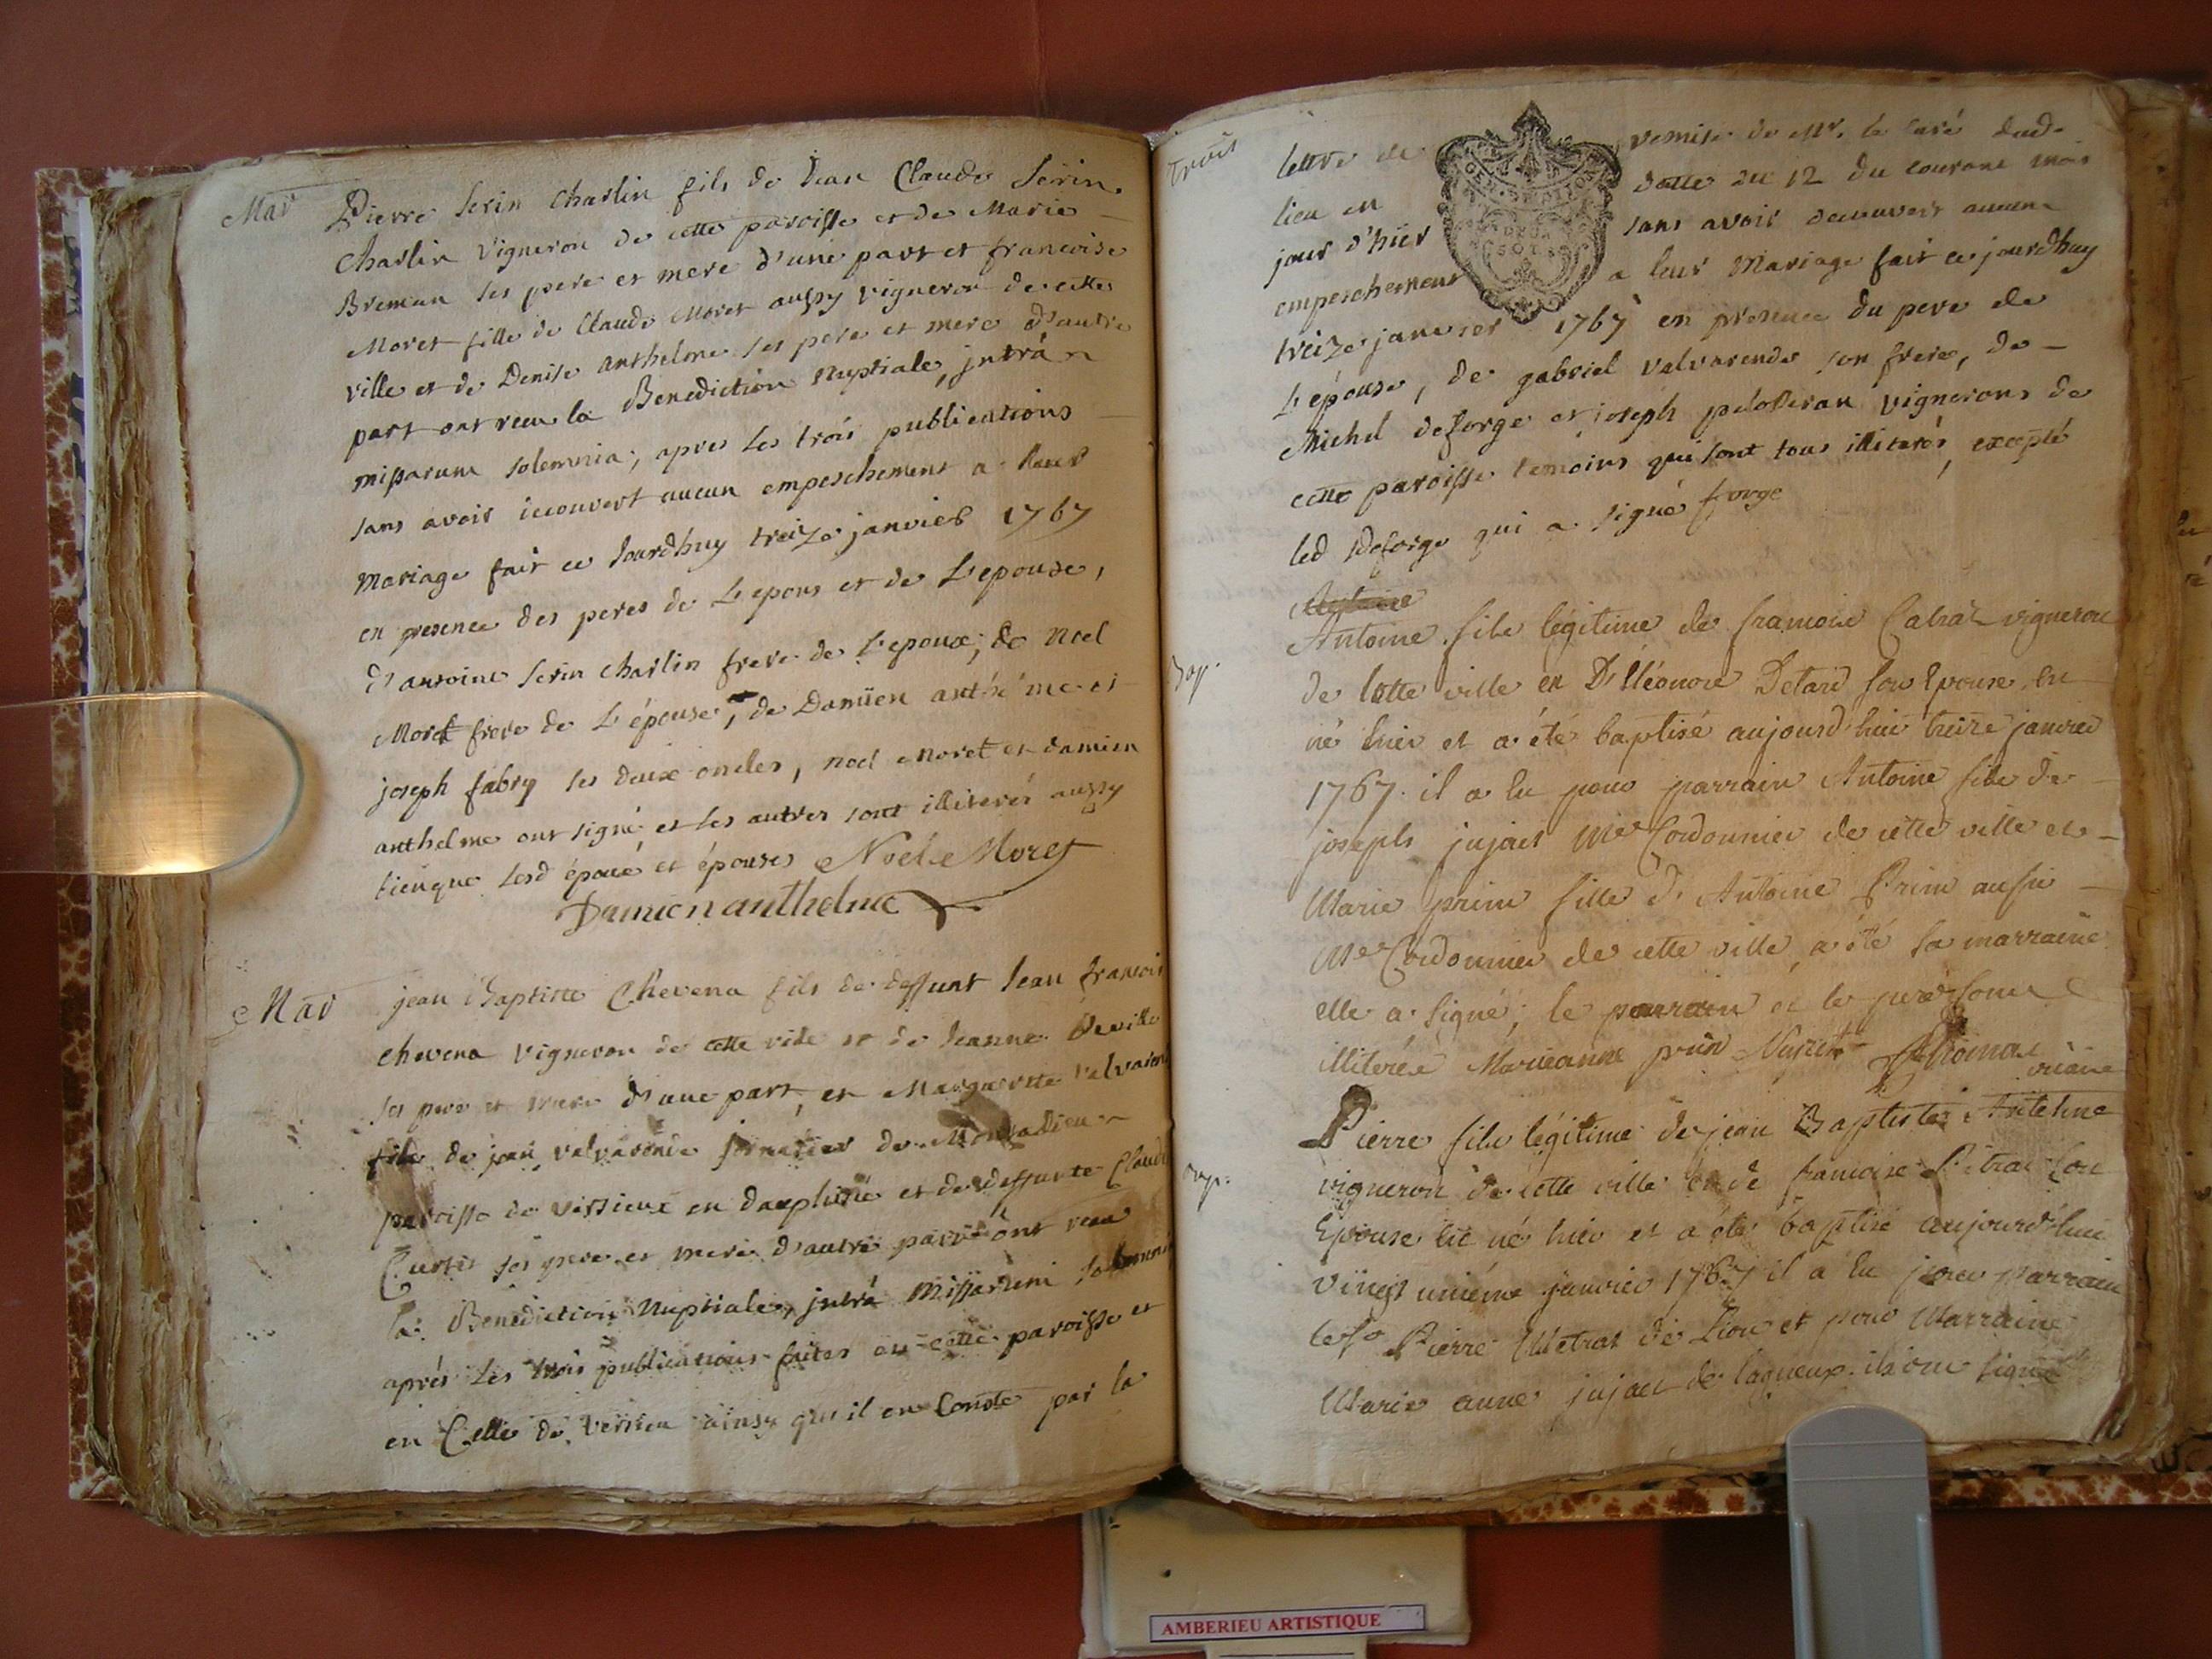 Mar
Pierre Serin Charlin fils de Jean Claude Serin
Charlin Vigneron de cette paroisse et de Marie
Breman ses pere et mere d'une part et francoise
Moret fille de Claude Moret aussy vigneron de cette
ville et de Denise anthelme ses pere et mere d'autre
part ont receu la Benediction Nuptiale, jntrà
missarum solemnia; apres les trois publications
sans avoir decouvert aucun empeschement a leur
Mariage fait ce Jourdhuy treize janvier 1767
en presence des peres de L'epous et de L'epouse,
d'antoine Serin Charlin frere de L'epoux; de Noel
Moret frere de L'épouse, de Damïen anthélme et
joseph fabry ses deux oncles, noel Moret et damien
anthelme ont signé et les autres sont illiterés aussy
bienque lesd époux et épouses Noel Moret
Damien anthelme
Mar
jean Baptiste Chevena fils de deffunt Jean francois
chevena Vigneron de cette ville et de Jeanne Deville
ses pere et mere d'une part, et Marguerite valvaron
fille de jean valvaronde de
paroisse de vissieux en dauphiné et de deffunte Claud
Curtis ses pere et mere d'autre part ont receu
la Benediction Nuptiale, jntrá Missarum
aprés les trois publications faites en cette paroisse et
en Celle de vissieu ainsy qu'il en Conste par la
trois
lettre de remise de Mr. le curé dud.
lieu en datte du 12 du courant mois
jour d'hier sans avoir decouvert aucun
empeschement a leur Mariage fait ce jourdhuy
treize janvier 1767 en presence du pere de
L'épouse, de gabriel valvarende son frere, de
Michel deforge et joseph peloderan vignerons de
cette paroisse temoins qui sont tous illiterés, excepté
led deforge qui a signé forge
Antoine
Bap.
Antoine fils légitime de francois Catrat vigneron
de cette ville et D'Eléonore Detard son Epouse est
né hier et a été baptisé aujourd'hui treize janvier
1767. il a eu pour parrain Antoine fils de
joseph jujat Me Cordonnier de cette ville et
Marie prin fille d'Antoine Prin aussi
Me Cordonnier de cette ville, a été sa marraine
elle a signé; le parrain et le pere sont
illiterés Marieanne prin Thomas
vicaire
Bap.
Pierre fils légitime de jean Baptiste Antelme
vigneron de cette ville et de francoise son
Epouse est né hier et a été baptisé aujourd'hui
vingt unième janvier 1767 il a eu pour parrain
le sr Pierre Métrat de Lion et pour Marraine
Marie anne jujat de lagneux. ils ont signé
GEN. 
SOLS
AMBERIEU ARTISTIQUE